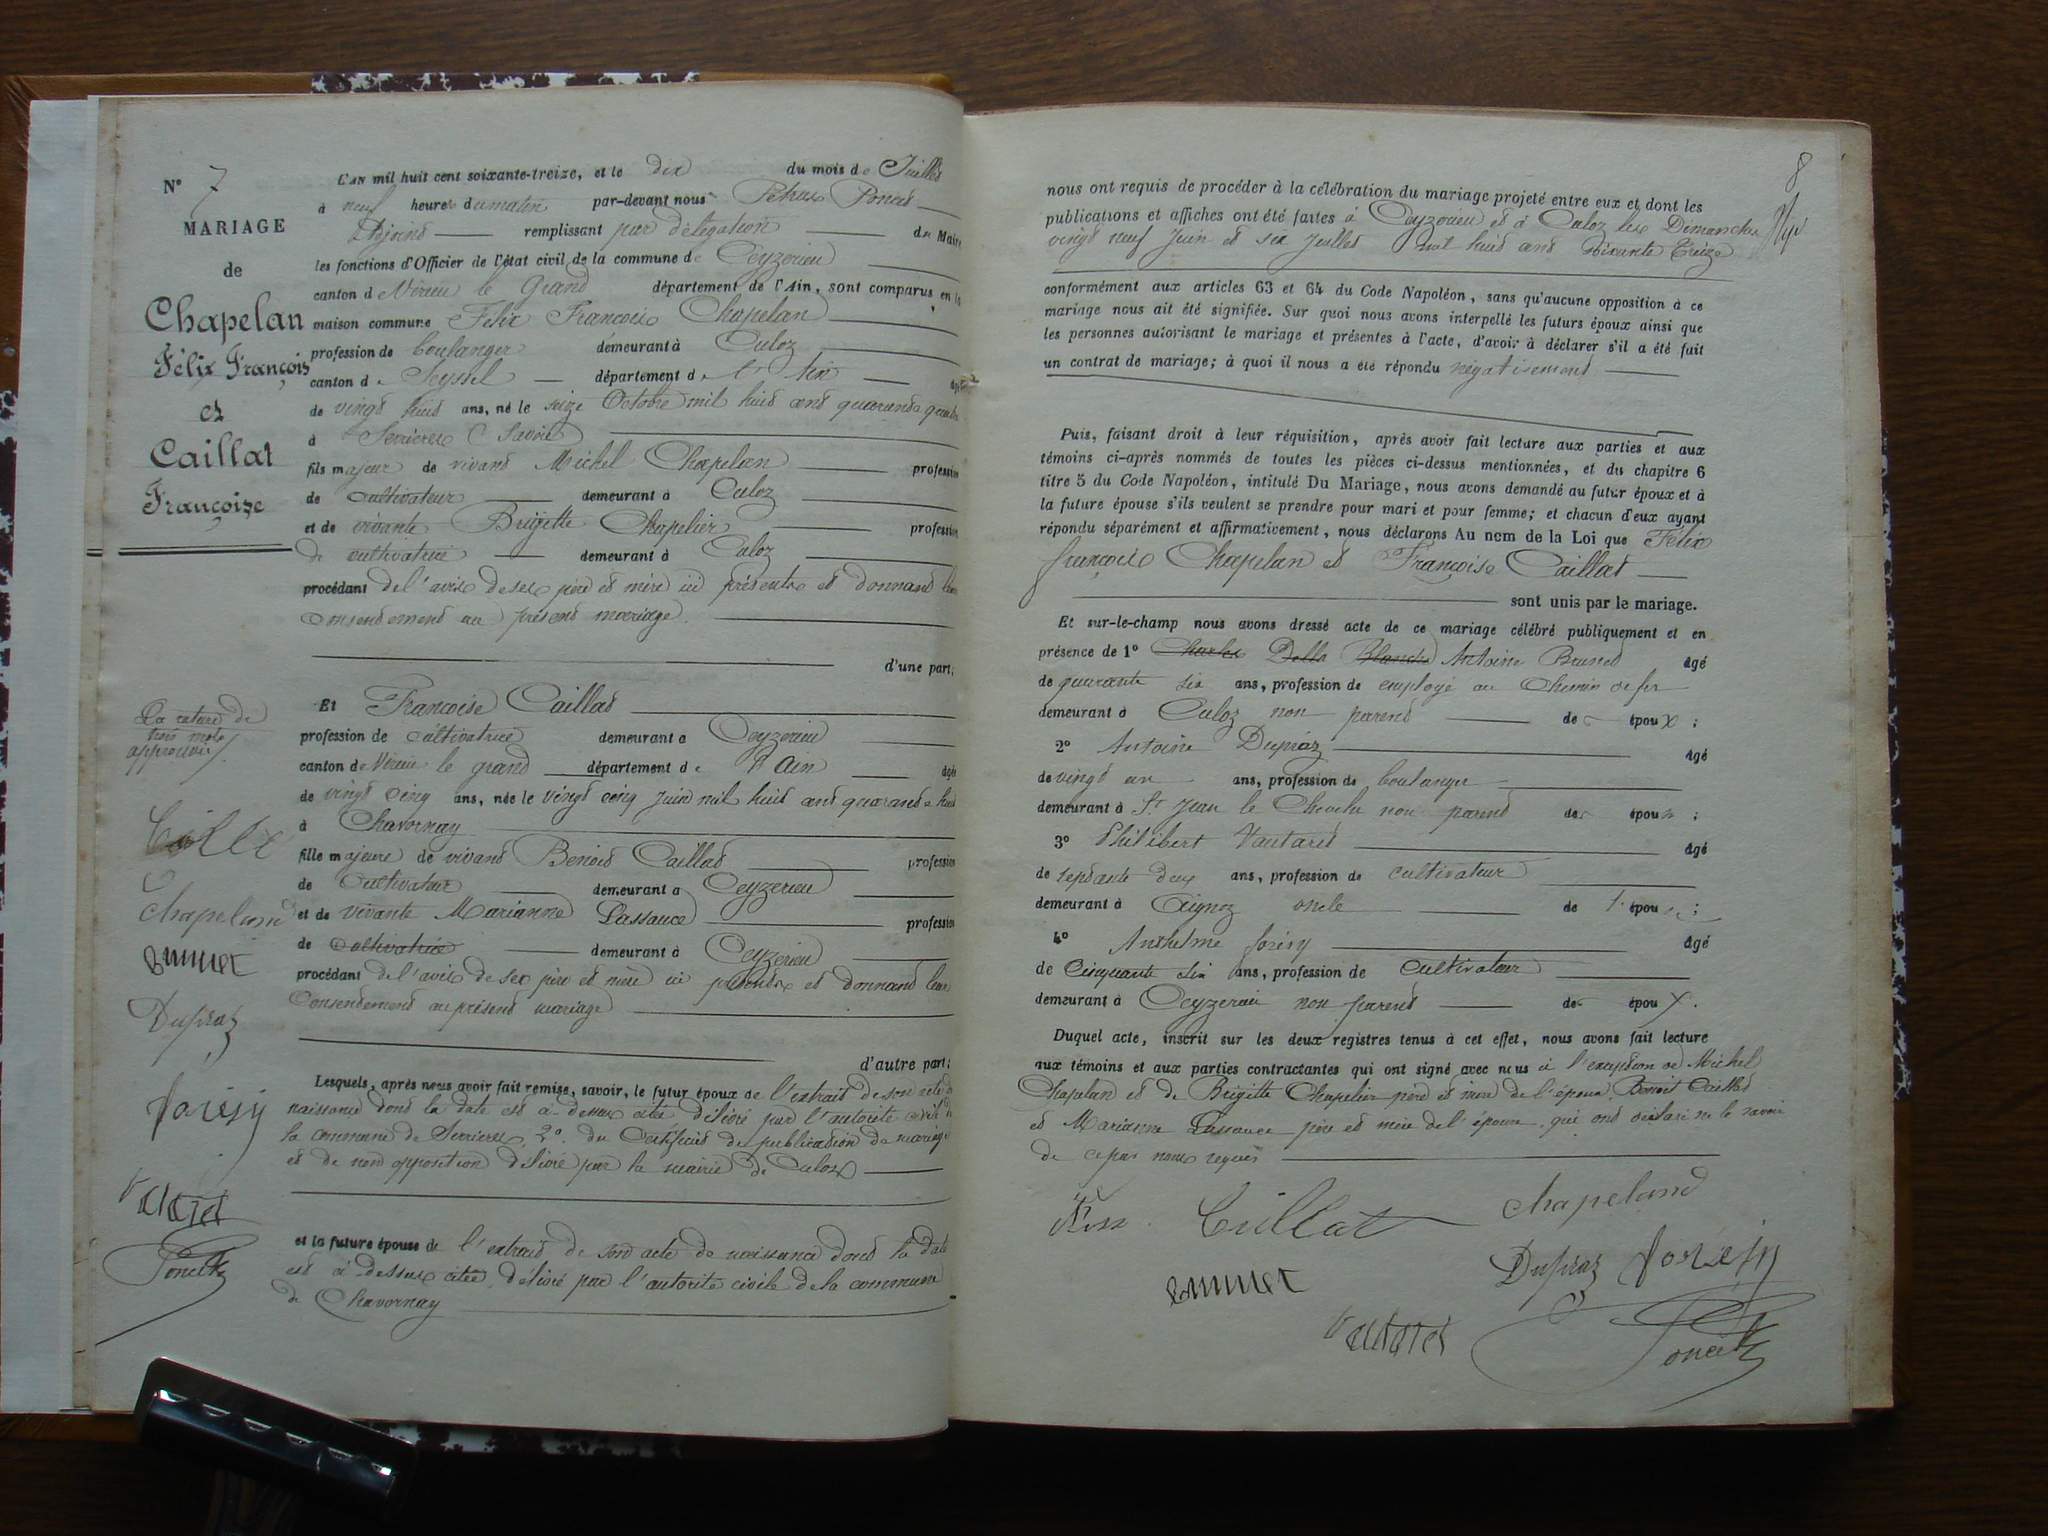 N° 7
MARIAGE
de
Chapelan
Félix François
et
Caillat
Françoise
L'AN mil huit cent soixante-treize, et le dix du mois de Juillet
à neuf heures du matin par-devant nous Petrus Poncet
Adjoint remplissant par délégation du Maire
les fonctions d'Officier de l'état civil de la commune de Ceyzerieu
canton de Virieu le Grand département de l'Ain, sont comparus en la
maison commune Félix François Chapelan
profession de boulanger demeurant à Culoz
canton de Seyssel département de l'Ain âgé
de vingt huit ans, né le seize Octobre mil huit cent quarante quatre
à Serrieres (Savoie)
fils majeur de vivant Michel Chapelan profession
de cultivateur demeurant à Culoz
et de vivante Brigette Chapelier profession
de cultivatrice demeurant à Culoz
procédant de l'avis de ses père et mère ici présents et donnant leur
consentement au présent mariage.
d'une part;
La rature de
trois mots
approuvée
Et Françoise Caillat
profession de cultivatrice demeurant à Ceyzerieu
canton de Virieu le grand département de l'Ain âgée
de vingt cinq ans, née le vingt cinq Juin mil huit cent quarante huit
à Chavornay
fille majeure de vivant Benoit Caillat profession
de Cultivateur demeurant à Ceyzerieu
et de vivante Marianne Lassauce profession
de cultivatrice demeurant à Ceyzerieu
procédant de l'avis de ses père et mère ici présents et donnant leur
Consentement au présent mariage
d'autre part;
Lesquels, après nous avoir fait remise, savoir, le futur époux de l'extrait de son acte de
naissance dont la date est ci-dessus citée délivré par l'autorité civile de
la commune de Serrieres, 2° du Certificat de publication de mariage
et de non opposition délivré par la mairie de Culoz
et la future épouse de l'extrait de son acte de naissance dont la date
est ci-dessus citée délivré par l'autorité civile de la commune
de Chavornay
Caillat
Chapeland
Brunet
Dupraz
forésy
Vautaret
Poncet
8
nous ont requis de procéder à la célébration du mariage projeté entre eux et dont les
publications et affiches ont été faites à Ceyzerieu et à Culoz les Dimanches
vingt neuf Juin et six Juillet mil huit cent soixante treize
conformément aux articles 63 et 64 du Code Napoléon, sans qu'aucune opposition à ce
mariage nous ait été signifiée. Sur quoi nous avons interpellé les futurs époux ainsi que
les personnes autorisant le mariage et présentes à l'acte, d'avoir à déclarer s'il a été fait
un contrat de mariage; à quoi il nous a été répondu négativement
Puis, faisant droit à leur réquisition, après avoir fait lecture aux parties et aux
témoins ci-après nommés de toutes les pièces ci-dessus mentionnées, et du chapitre 6
titre 5 du Code Napoléon, intitulé Du Mariage, nous avons demandé au futur époux et à
la future épouse s'ils veulent se prendre pour mari et pour femme; et chacun d'eux ayant
répondu séparément et affirmativement, nous déclarons Au nom de la Loi que Félix
françois Chapelan et Françoise Caillat
sont unis par le mariage.
Et sur-le-champ nous avons dressé acte de ce mariage célébré publiquement et en
présence de 1° Charles Della Blanche Antoine Brunet âgé
de quarante six ans, profession de employé au Chemin de fer
demeurant à Culoz non parent de époux ;
2° Antoine Dupraz âgé
de vingt un ans, profession de boulanger
demeurant à St Jean le Cheoche non parent de époux ;
3° Philibert Vautaret âgé
de septante deux ans, profession de cultivateur
demeurant à Aignoz oncle de l'épouse ;
4° Anthelme forésy âgé
de Cinquante six ans, profession de Cultivateur
demeurant à Ceyzerieu non parent de époux.
Duquel acte, inscrit sur les deux registres tenus à cet effet, nous avons fait lecture
aux témoins et aux parties contractantes qui ont signé avec nous à l'exception de Michel
Chapelan et de Brigitte Chapelier père et mère de l'époux, Benoit Caillat
et Marianne Lassauce père et mère de l'épouse qui ont déclaré ne le savoir
de ce par nous requis
Caillat Chapeland
Dupraz forésy
Brunet
Vautaret
Poncet